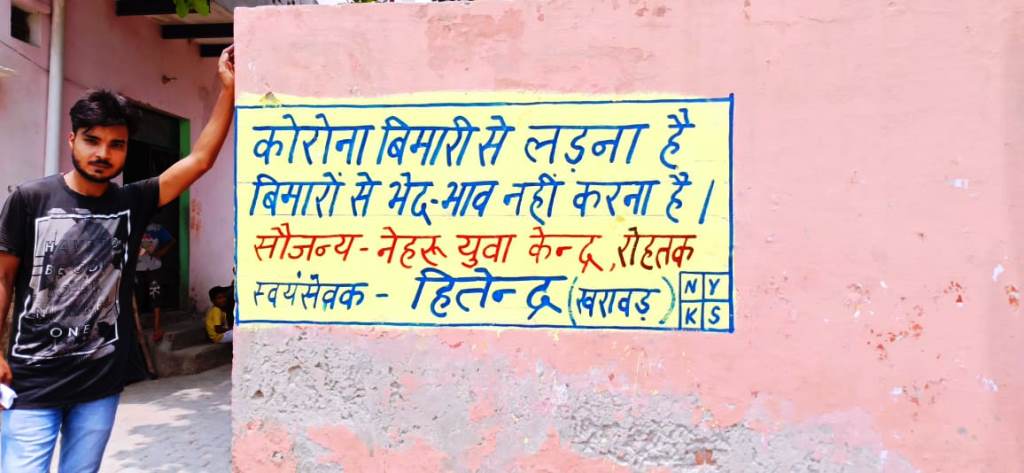 कोरोना बिमारी से लड़ना है
बिमारों से भेद-भाव नहीं करना है।
सौजन्य - नेहरू युवा केन्द्र, रोहतक
स्वयंसेवक - हितेन्द्र (खरावड़)
N Y
K S
ONE